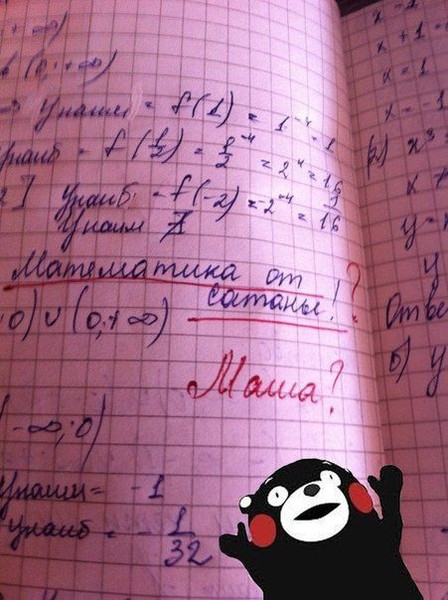 +∞)
(0;+∞)
Унаим = f(1) = 1⁻⁴ = 1
Унаиб = f(1/2) = 1/2⁻⁴ = 2⁴ = 16
Унаиб = f(-2) = 2⁻⁴ = 1/16
Унаим ∄
Математика от
сатаны! ?
0) ∪ (0;+∞)
Маша?
-∞;0)
Унаим = -1
Унаиб = -1/32
x + 1 =
x = 1
x = -1
x³
y =
y
Отве
б) y